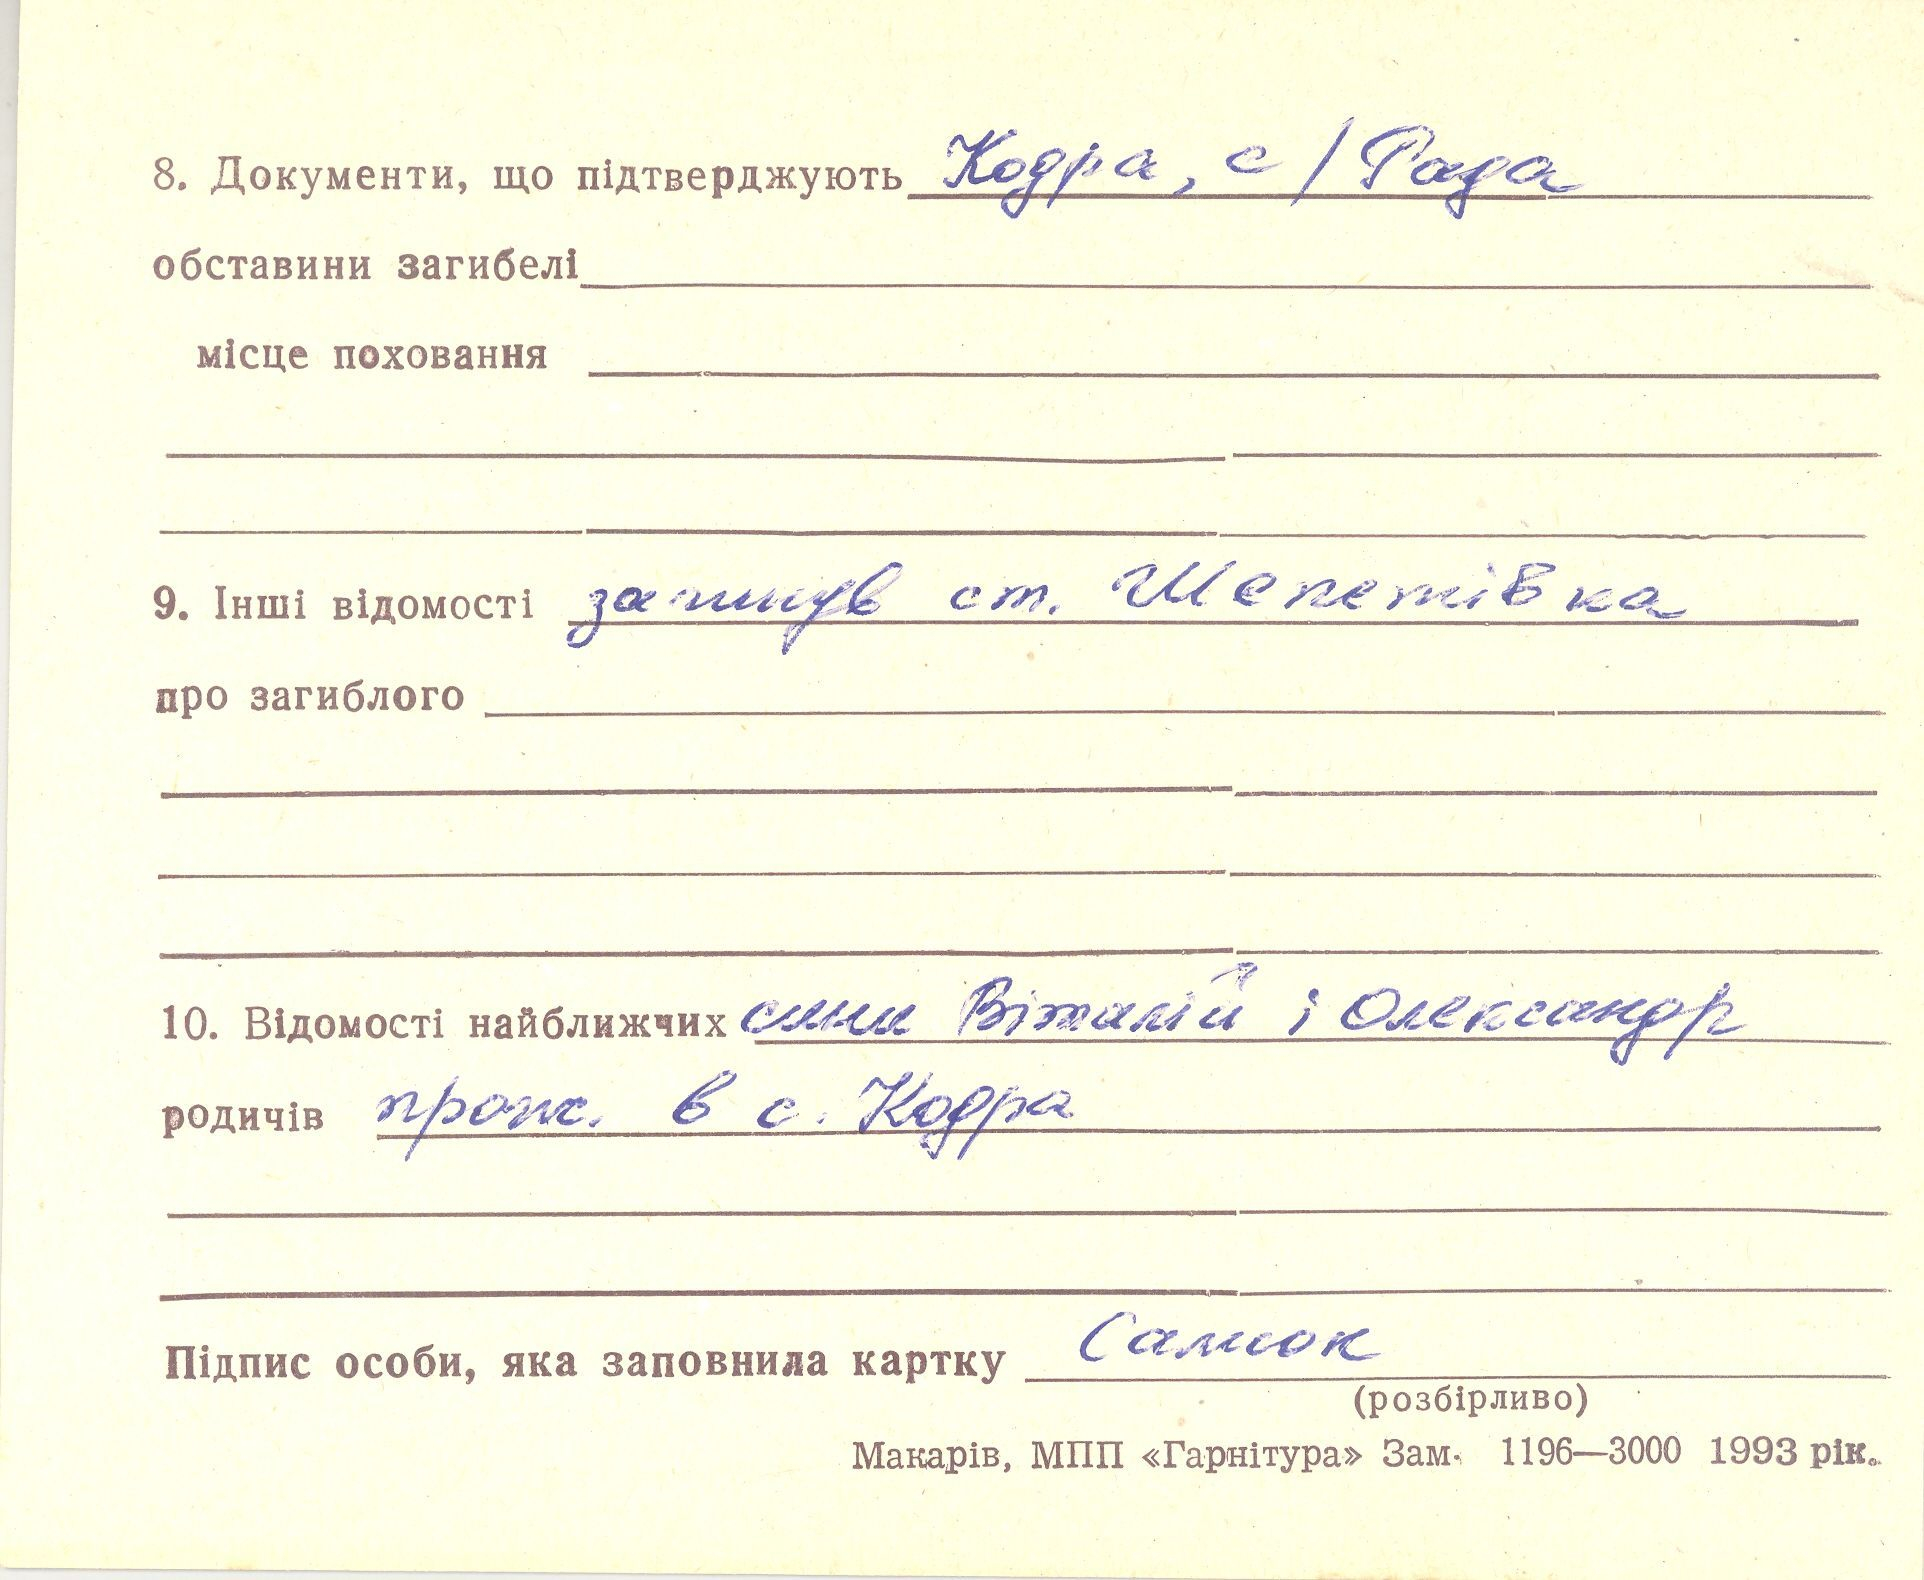 8. Документи, що підтверджують Кодра, с/Рада
обставини загибелі
місце поховання
9. Інші відомості загинув ст. Шепетівка
про загиблого
10. Відомості найближчих сини Віталій і Олександр
родичів прож. в с. Кодра
Підпис особи, яка заповнила картку Самок
(розбірливо)
Макарів, МПП «Гарнітура» Зам. 1196—3000 1993 рік.